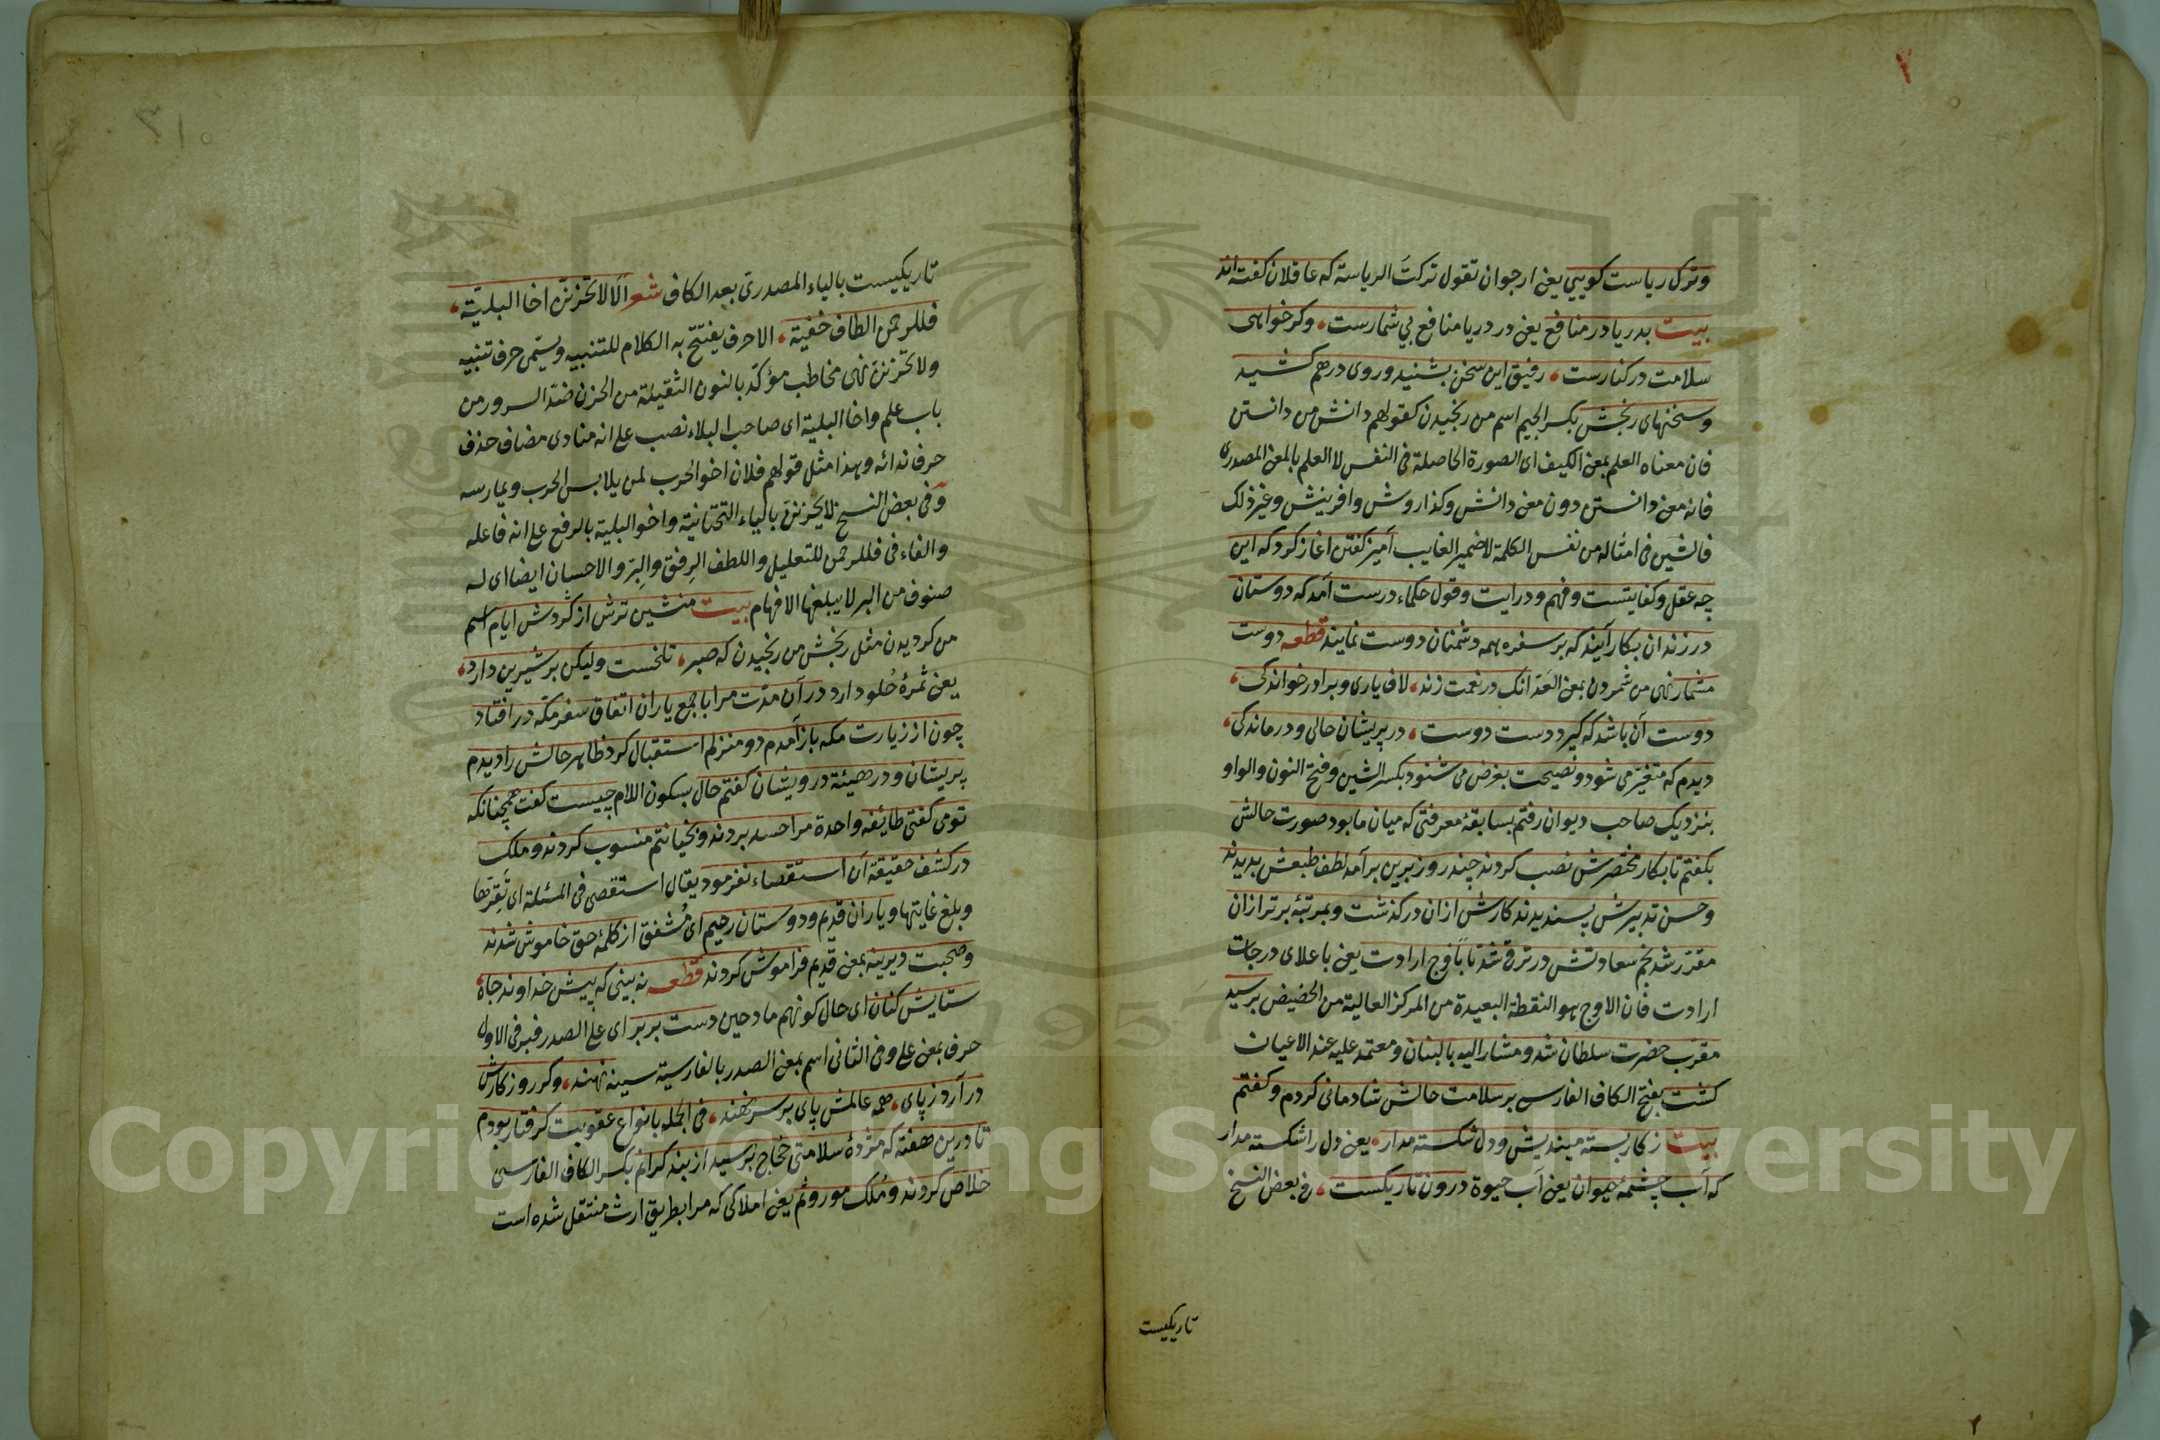 وترک ریاست کویی یعنی ارجو ان تقول ترکتَ الریاسة که عاقلان کفته اند
بیت بدریا در منافع یعنی در دریا منافع بی شمارست، وکر خواهی
سلامت در کنارست، رفیق این سخن بشنید وروی درهم کشید
وسخنهای رنجش بکسر الجیم اسم من رنجیدن کقولهم دانش من دانستن
فان معناه العلم بمعنی الکیف ای الصورة الحاصلة فی النفس لا العلم بالمعنی المصدری
فانه معنی دانستن دون معنی دانش وکذا روش وافرینش وغیر ذلک
فالشین فی امثاله من نفس الکلمة لا ضمیر الغایب آمیز کفتن اغاز کرد که این
چه عقل وکفایتست وفهم ودرایت وقول حکماء درست آمد که دوستان
در زندان بکار آیند که بر سفره همه دشمنان دوست نمایند قطعه دوست
مشمار نهی من شمردن بمعنی العَدّ انک در نعمت زند، لاف یاری وبرادر خواندکی،
دوست آن باشد که کیرد دست دوست، در پریشان حالی ودرماندکی،
دیدم که متغیّر می شود ونصیحت بغرض می شنود بکسر الشین وفتح النون والواو
بنزدیک صاحب دیوان رفتم بسابقهٔ معرفتی که میان ما بود صورت حالش
بکفتم تا بکار مختصرش نصب کردند چند روز برین برآمد لطف طبعش بدیدند
وحسن تدبیرش پسندیدند کارش ازان درکذشت وبمرتبهٔ برتر ازان
مقرّر شد نجم سعادتش در ترقی شد تا باَوج ارادت یعنی باعلای درجات
ارادت فان الاوج هو النقطة البعیدة من المرکز العالیة من الحضیض برسید
مقرّب حضرت سلطان شد ومشار الیه بالبنان ومعتمد علیه عند الاعیان
کشت بفتح الکاف الفارسی بر سلامت حالش شادمانی کردم وکفتم
بیت ز کار بسته میندیش ودل شکسته مدار، یعنی دل را شکسته مدار
که آب چشمهٔ حیوان یعنی آب حیوة درون تاریکست، وفی بعض النسخ
تاریکیست
تاریکیست بالیاء المصدری بعد الکاف شعر اَلَا لا تحزننّ اخا البلیّة،
فللرحمن الطاف خفیة، الا حرف یفتتح به الکلام للتنبیه ویسمی حرف تنبیه
ولا تحزنن نهی مخاطب مؤکد بالنون الثقیلة من الحزن ضد السرور من
باب علم واخا البلیة ای صاحب البلاء نصب علی انه منادی مضاف حذف
حرف ندائه وهذا مثل قولهم فلان اخو الحرب لمن یلابس الحرب ویمارسه
وفی بعض النسخ لا یحزننّ بالیاء التحتانیة واخو البلیة بالرفع علی انه فاعله
والفاء فی فللرحمن للتعلیل واللطف الرِفق والبِرّ والاحسان ایضا ای له
صنوف من البر لا یبلغها الافهام بیت منشین ترش از کَردش ایام اسم
من کردیدن مثل رنجش من رنجیدن که صبر، تلخست ولیکن بر شیرین دارد،
یعنی ثمرهٔ حُلو دارد در آن مدّت مرا با جمع یاران اتفاق سفر مکه در افتاد
چون از زیارت مکه باز آمدم دو منزلم استقبال کرد ظاهر حالش را دیدم
پریشان ودر هیئة درویشان کفتم حال بسکون اللام چیست کفت همچنانکه
تو می کفتی طایفه واحدة مرا حسد بردند وبخیانتم منسوب کردند وملک
در کشف حقیقة آن استقصاء نفرمود یقال استقصی فی المسئلة ای تَقَرّبها
وبلغ غایتها ویاران قدیم ودوستان رحیم ای مُشفق از کلمهٔ حق خاموش شدند
وصحبت دیرینه بمعنی قدیم فراموش کردند قطعه نه بینی که پیش خداوند جاه،
ستایش کنان ای حال کونهم مادحین دست بر بر ای علی الصدر فبر فی الاول
حرف بمعنی علی وفی الثانی اسم بمعنی الصدر بالفارسیة سینه نهند، وکر روزکارش
در آرد ز پای، همه عالمش پای بر سر نهند، فی الجمله بانواع عقوبت کرفتار بودم
تا درین هفته که مژدهٔ سلامتی حجاج برسید از بند کرانم بکسر الکاف الفارسی
خلاص کردند ومُلک موروثم یعنی املاکی که مرا بطریق ارث منتقل شده است
Copyright © King Saud University
1957